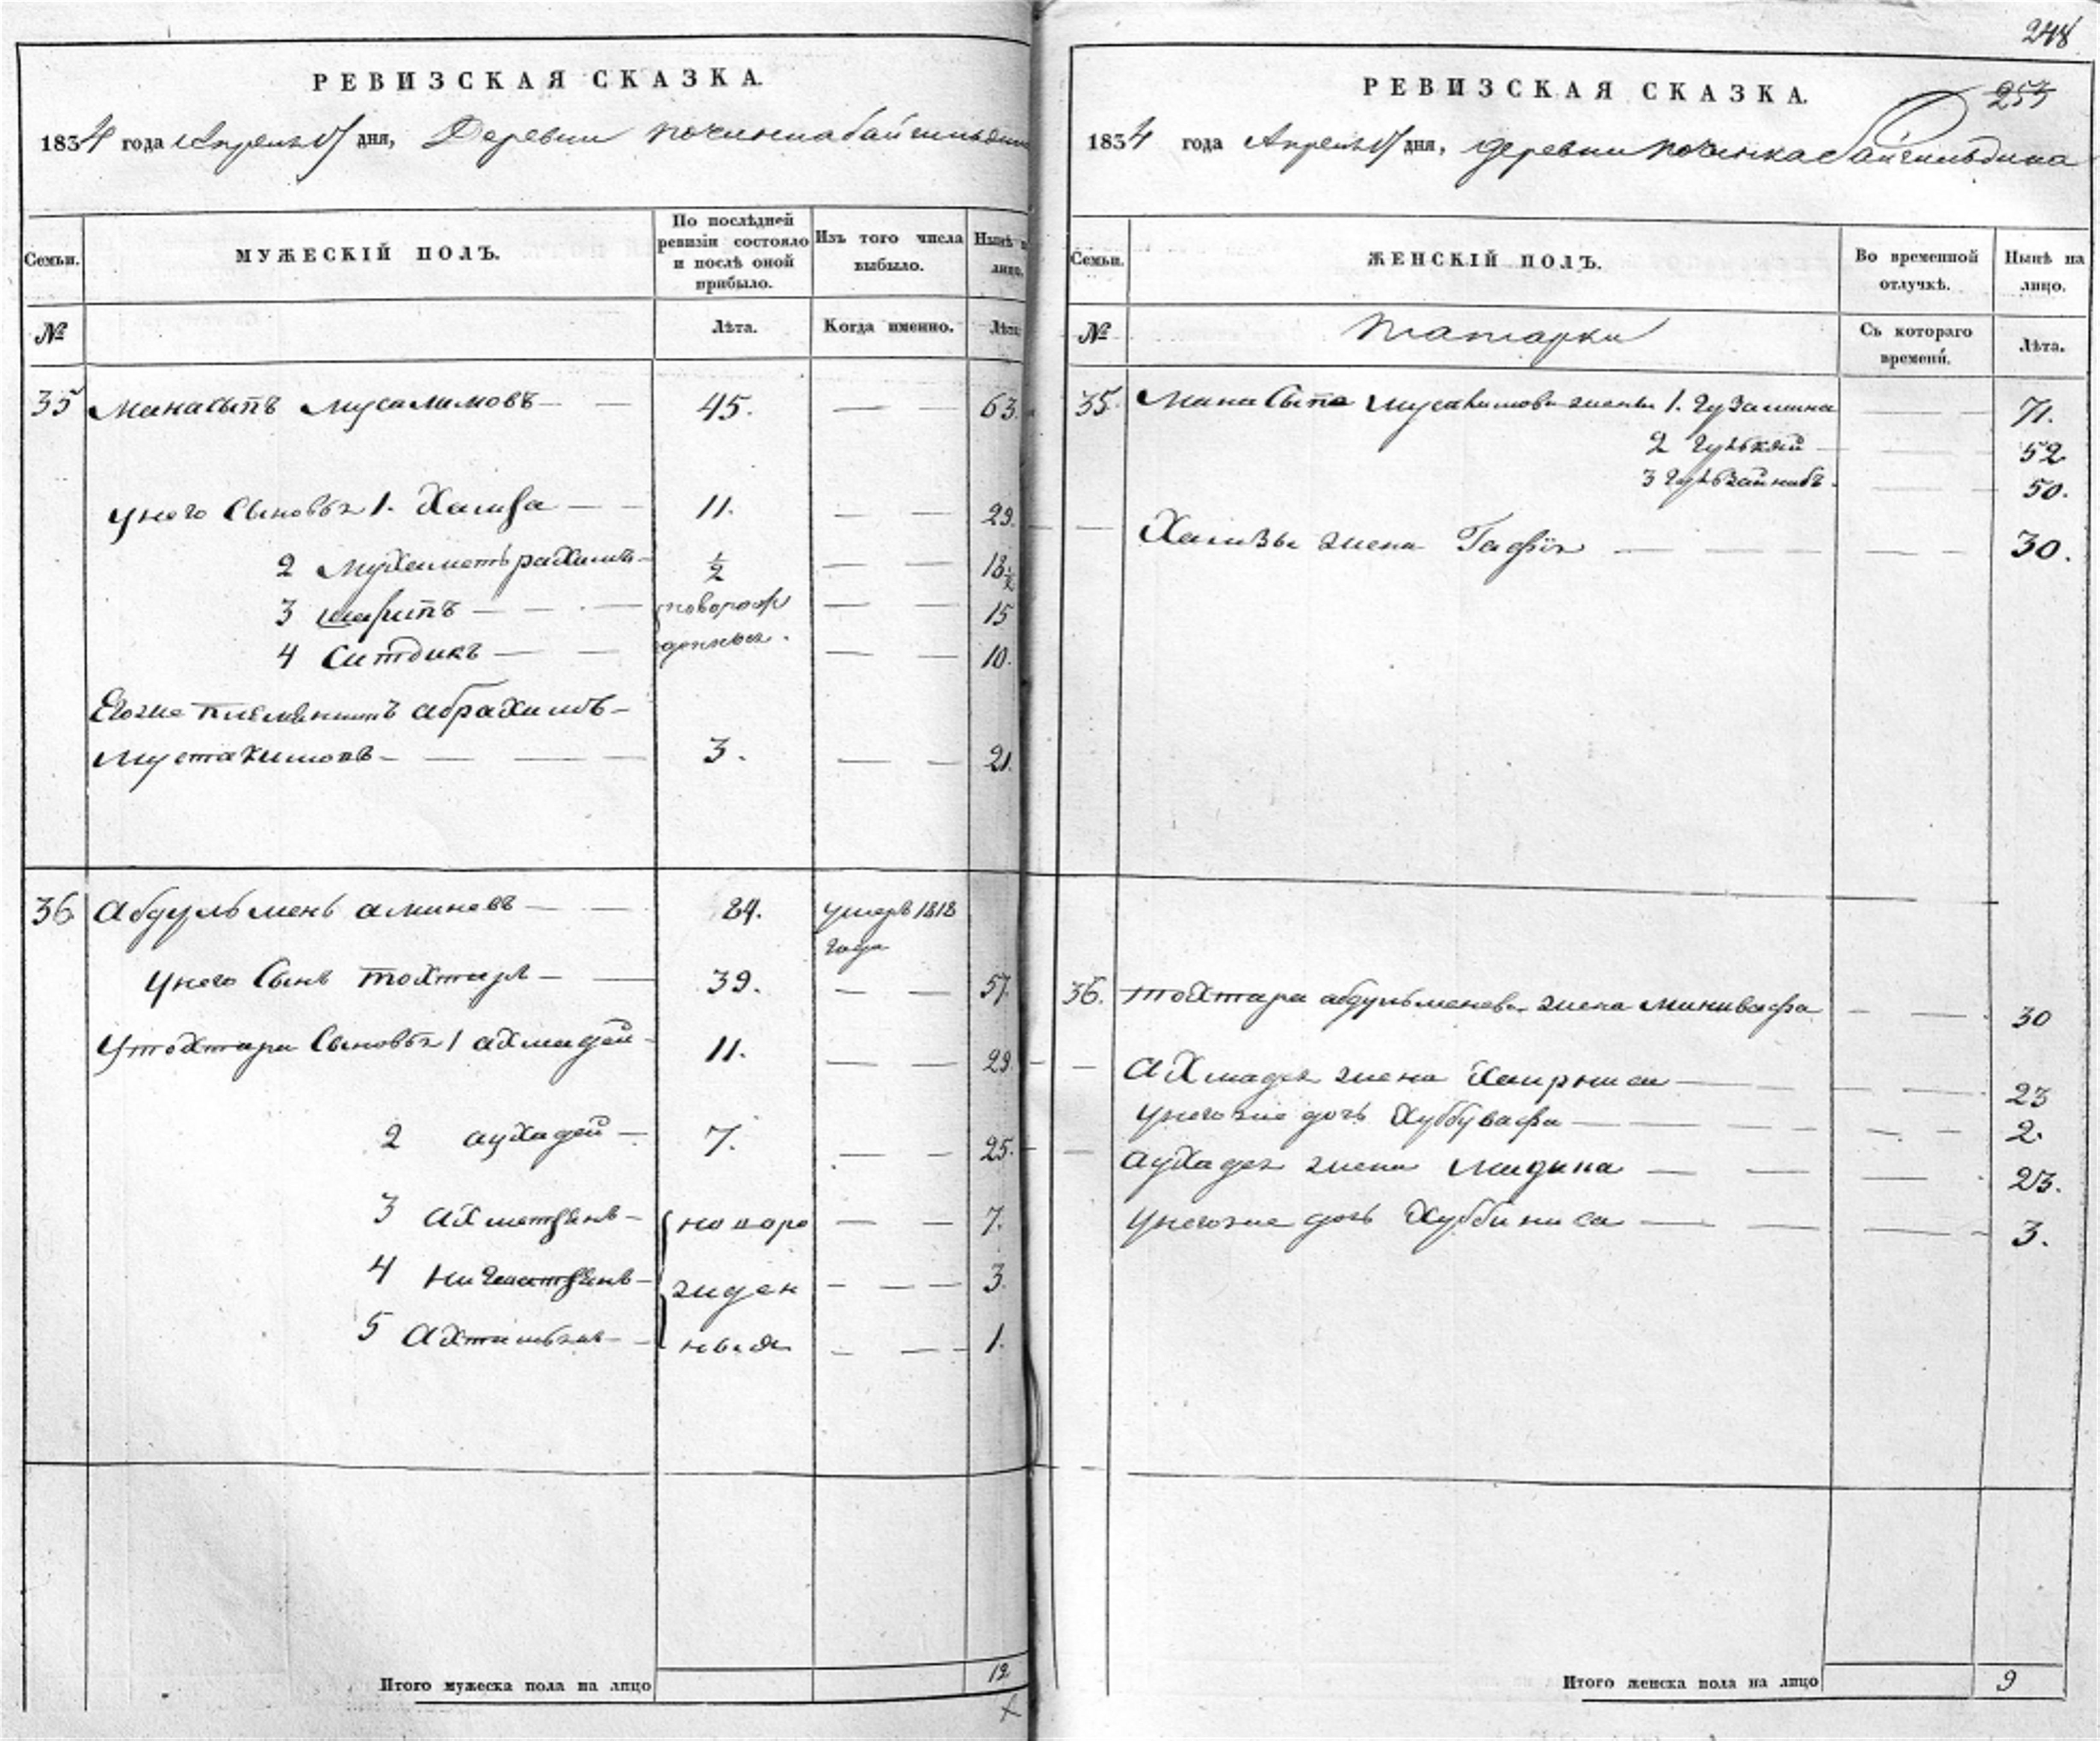 РЕВИЗСКАЯ СКАЗКА.
1834 года Апреля дня, Деревни починка байгильдин
Семьи.
МУЖЕСКІЙ ПОЛЪ.
По послѣдней ревизіи состояло и послѣ оной прибыло.
Изъ того числа выбыло.
Нынѣ
лицо.
№
Лѣта.
Когда именно.
Лѣта
35 Манасыпъ Мусалимовъ 45. 63.
у него сыновья 1. Хамза 11. 29.
2 Мухаметьрахимъ ½ 18½
3 шарипъ новорож 15
4 Ситдикъ денныя. 10.
Егоже племянникъ абрахимъ
Мустакимовъ 3. 21.
36 Абдульменъ аминевъ 84. умеръ 1818
года
у него сынъ тохтаръ 39. 57.
у тохтара сыновья 1 ахмадей 11. 29.
2 аухадей 7. 25.
3 Ахметзянъ новоро 7.
4 Нигаметзянъ жден 3.
5 ныя 1.
Итого мужеска пола на лицо 12
248
РЕВИЗСКАЯ СКАЗКА.
253
1834 года Апреля дня, деревни починка байгильдина
Семьи.
ЖЕНСКІЙ ПОЛЪ.
Во временной отлучкѣ.
Нынѣ на лицо.
№
татарки
Съ котораго времени.
Лѣта.
35. Манасыпа Мусалимова жены 1. Гузамина 71.
2 Гулькяй 52
3 Гульзайнабъ. 50.
Хамзы жена Гафія 30.
36. тохтара абдульменева жена Минивафа 30
Ахмадея жена Хаирниса 23
у него же дочь Хуббувафа 2.
аухадея жена Мадина 23.
у него же дочь Хуббиниса 3.
Итого женска пола на лицо 9